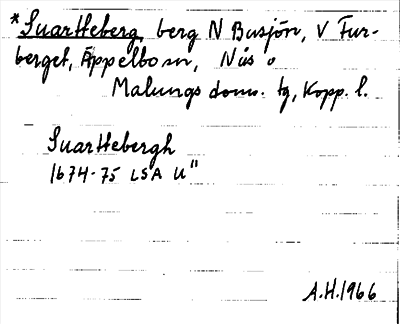 *Suartteberg, berg N Busjön, V Fur-
berget, Äppelbo sn, Nås o
Malungs doms. tg, Kopp. l.
Suarttebergh
1674-75 LSA U"
A.H. 1966